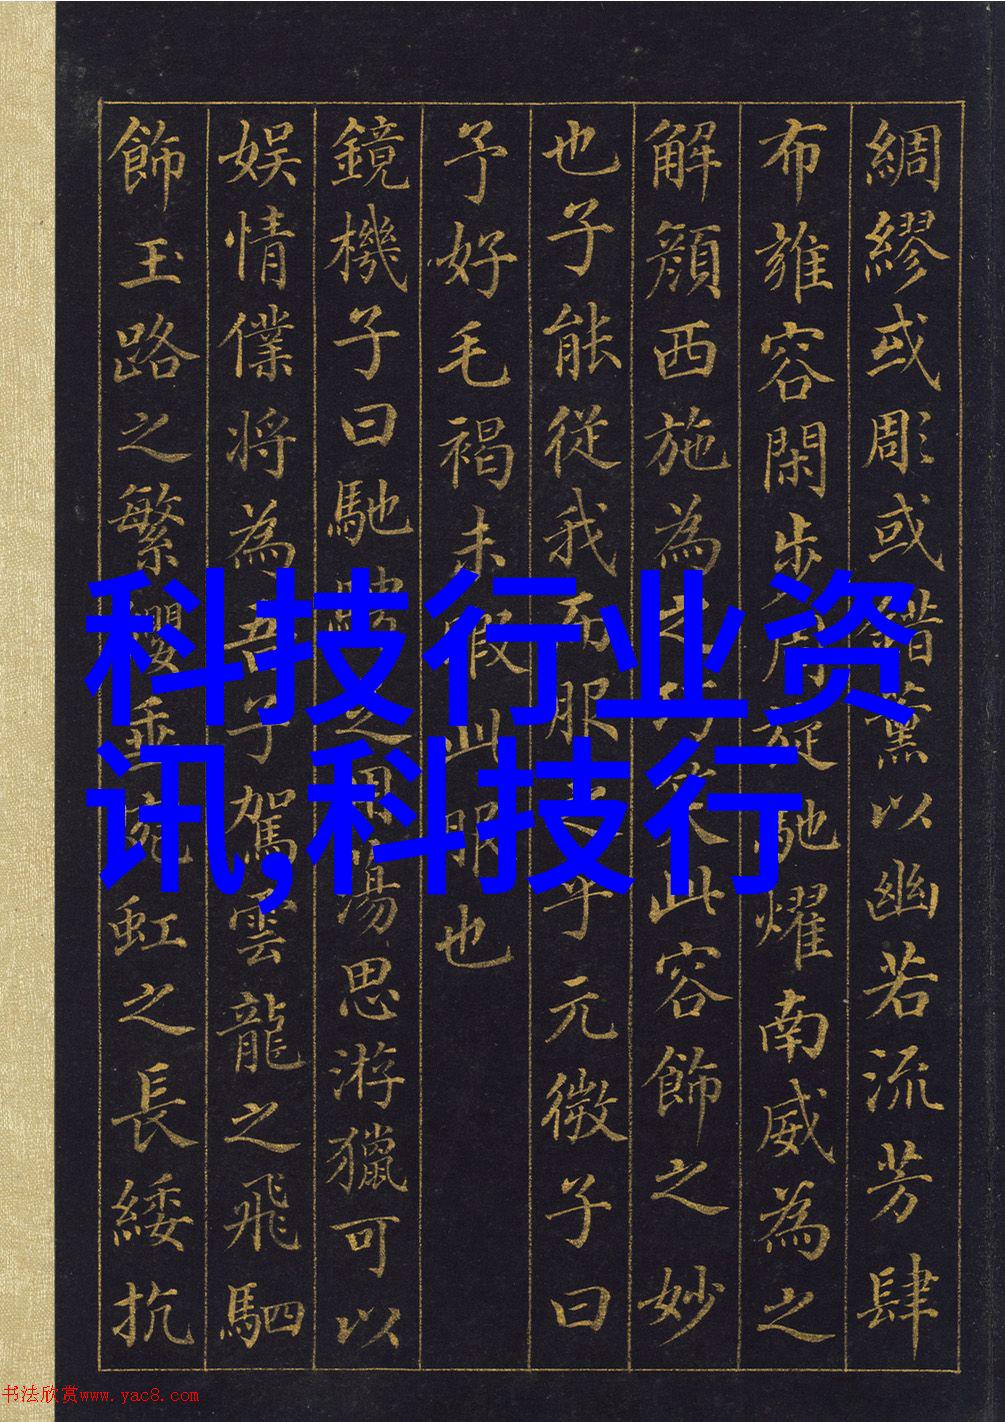 綢繆或彫或錯薰以幽若流芳肆
布雍容閑步周旋馳耀南威為之
解顏西施為之巧笑此容飾之妙
也子能從我而服之乎元微子曰
予好毛褐未暇此服也
鏡機子曰馳騁之用蕩思游獵可以
娛情僕將為吾子駕雲龍之飛駟
飾玉路之繁纓垂宛虹之長綏抗
科技行业资
讯,科技行
书法欣赏www.yac8.com